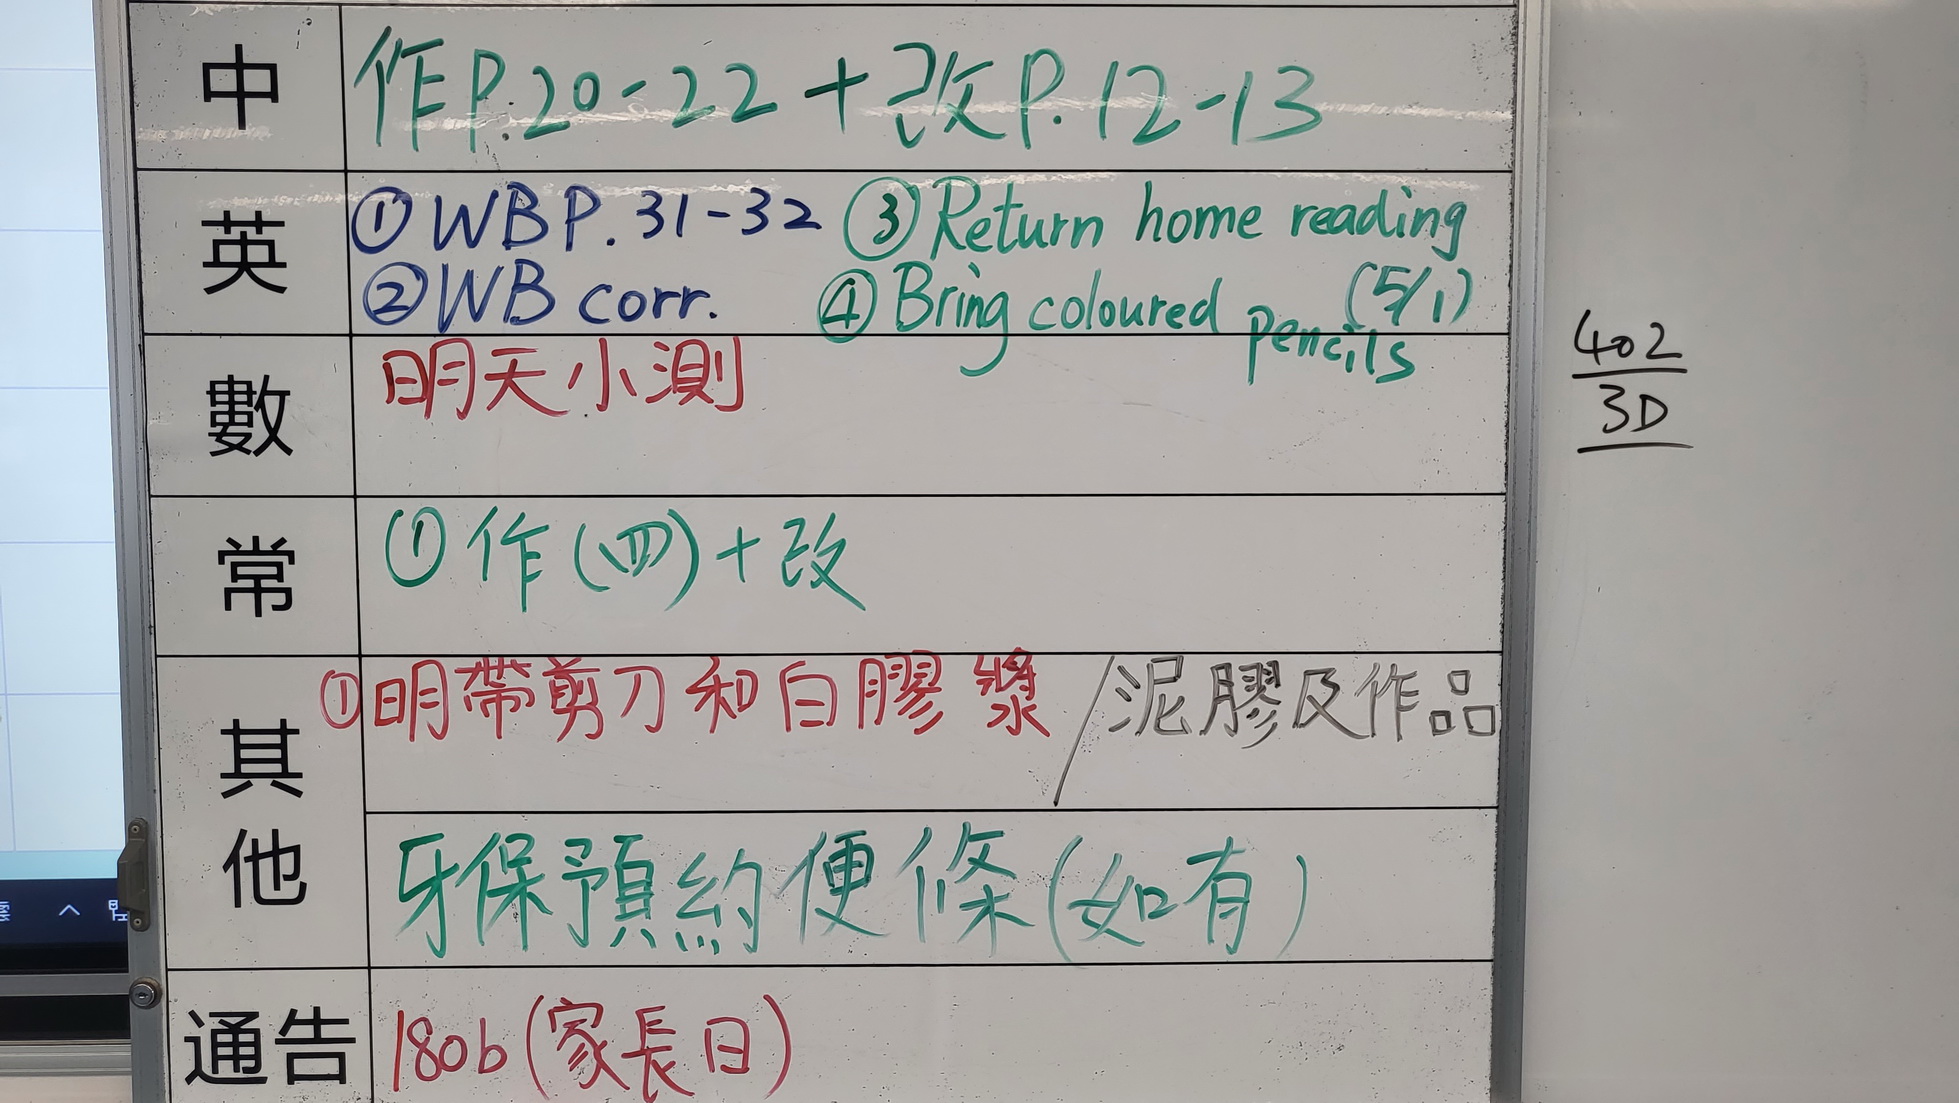 中
作P.20-22 + 改P.12-13
英
①WB P.31-32 ③Return home reading
②WB corr. ④Bring coloured pencils (5/1)
數
明天小測
常
①作(四)+改
其他
①明帶剪刀和白膠漿/泥膠及作品
牙保預約便條(如有)
通告
180b(家長日)
402
3D